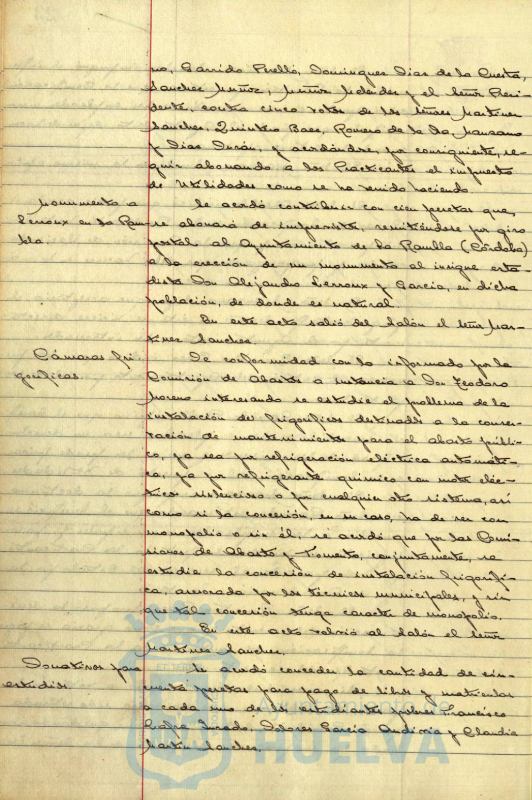 no, Garrido Perelló, Domínguez Díaz de la Cuesta,
Sánchez Muñoz, Muñoz Méndez y el Señor Presi-
dente, contra cinco votos de los señores Martínez
Sánchez, Quintero Baez, Romero de la
y Díaz Durán, y acordándose, por consiguiente, se-
guir abonando a los Practicantes el impuesto
de Utilidades como se ha venido haciendo.
Monumento a
Lerroux en la Ram-
bla.
Se acordó contribuir con cien pesetas que,
se abonará de imprevistos, remitiéndose por giro
postal al Ayuntamiento de La Rambla (Córdoba)
a la erección de un monumento al insigne esta-
dista Don Alejandro Lerroux y García, en dicha
población, de donde es natural.
En este acto salió del Salón el Señor Mar-
tínez Sánchez.
Cámaras fri-
goríficas.
De conformidad con lo informado por la
Comisión de Abastos a instancia a Don Teodoro
Moreno interesando se estudie el problema de la
instalación de frigoríficos destinados a la conser-
vación de mantenimientos para el abasto públi-
co, ya sea por refrigeración eléctrica automáti-
ca, ya por refrigerante químico con motor eléc-
trico silencioso o por cualquier otro sistema, así
como si la concesión, en su caso, ha de ser con
monopolio o sin él, se acordó que por las Comi-
siones de Abastos y Fomento, conjuntamente, se
estudie la concesión de instalación frigorífi-
ca, asesorada por los técnicos municipales, y sin
que tal concesión tenga caracter de monopolio.
En este acto volvió al Salón el Señor
Martínez Sánchez.
Donativos para
estudios.
Se acordó conceder la cantidad de cin-
cuenta pesetas para pago de libros y matrículas
a cada uno de los estudiantes pobres Francisco
Jurado, Dolores García y Claudia
Martín Sánchez.
HUELVA